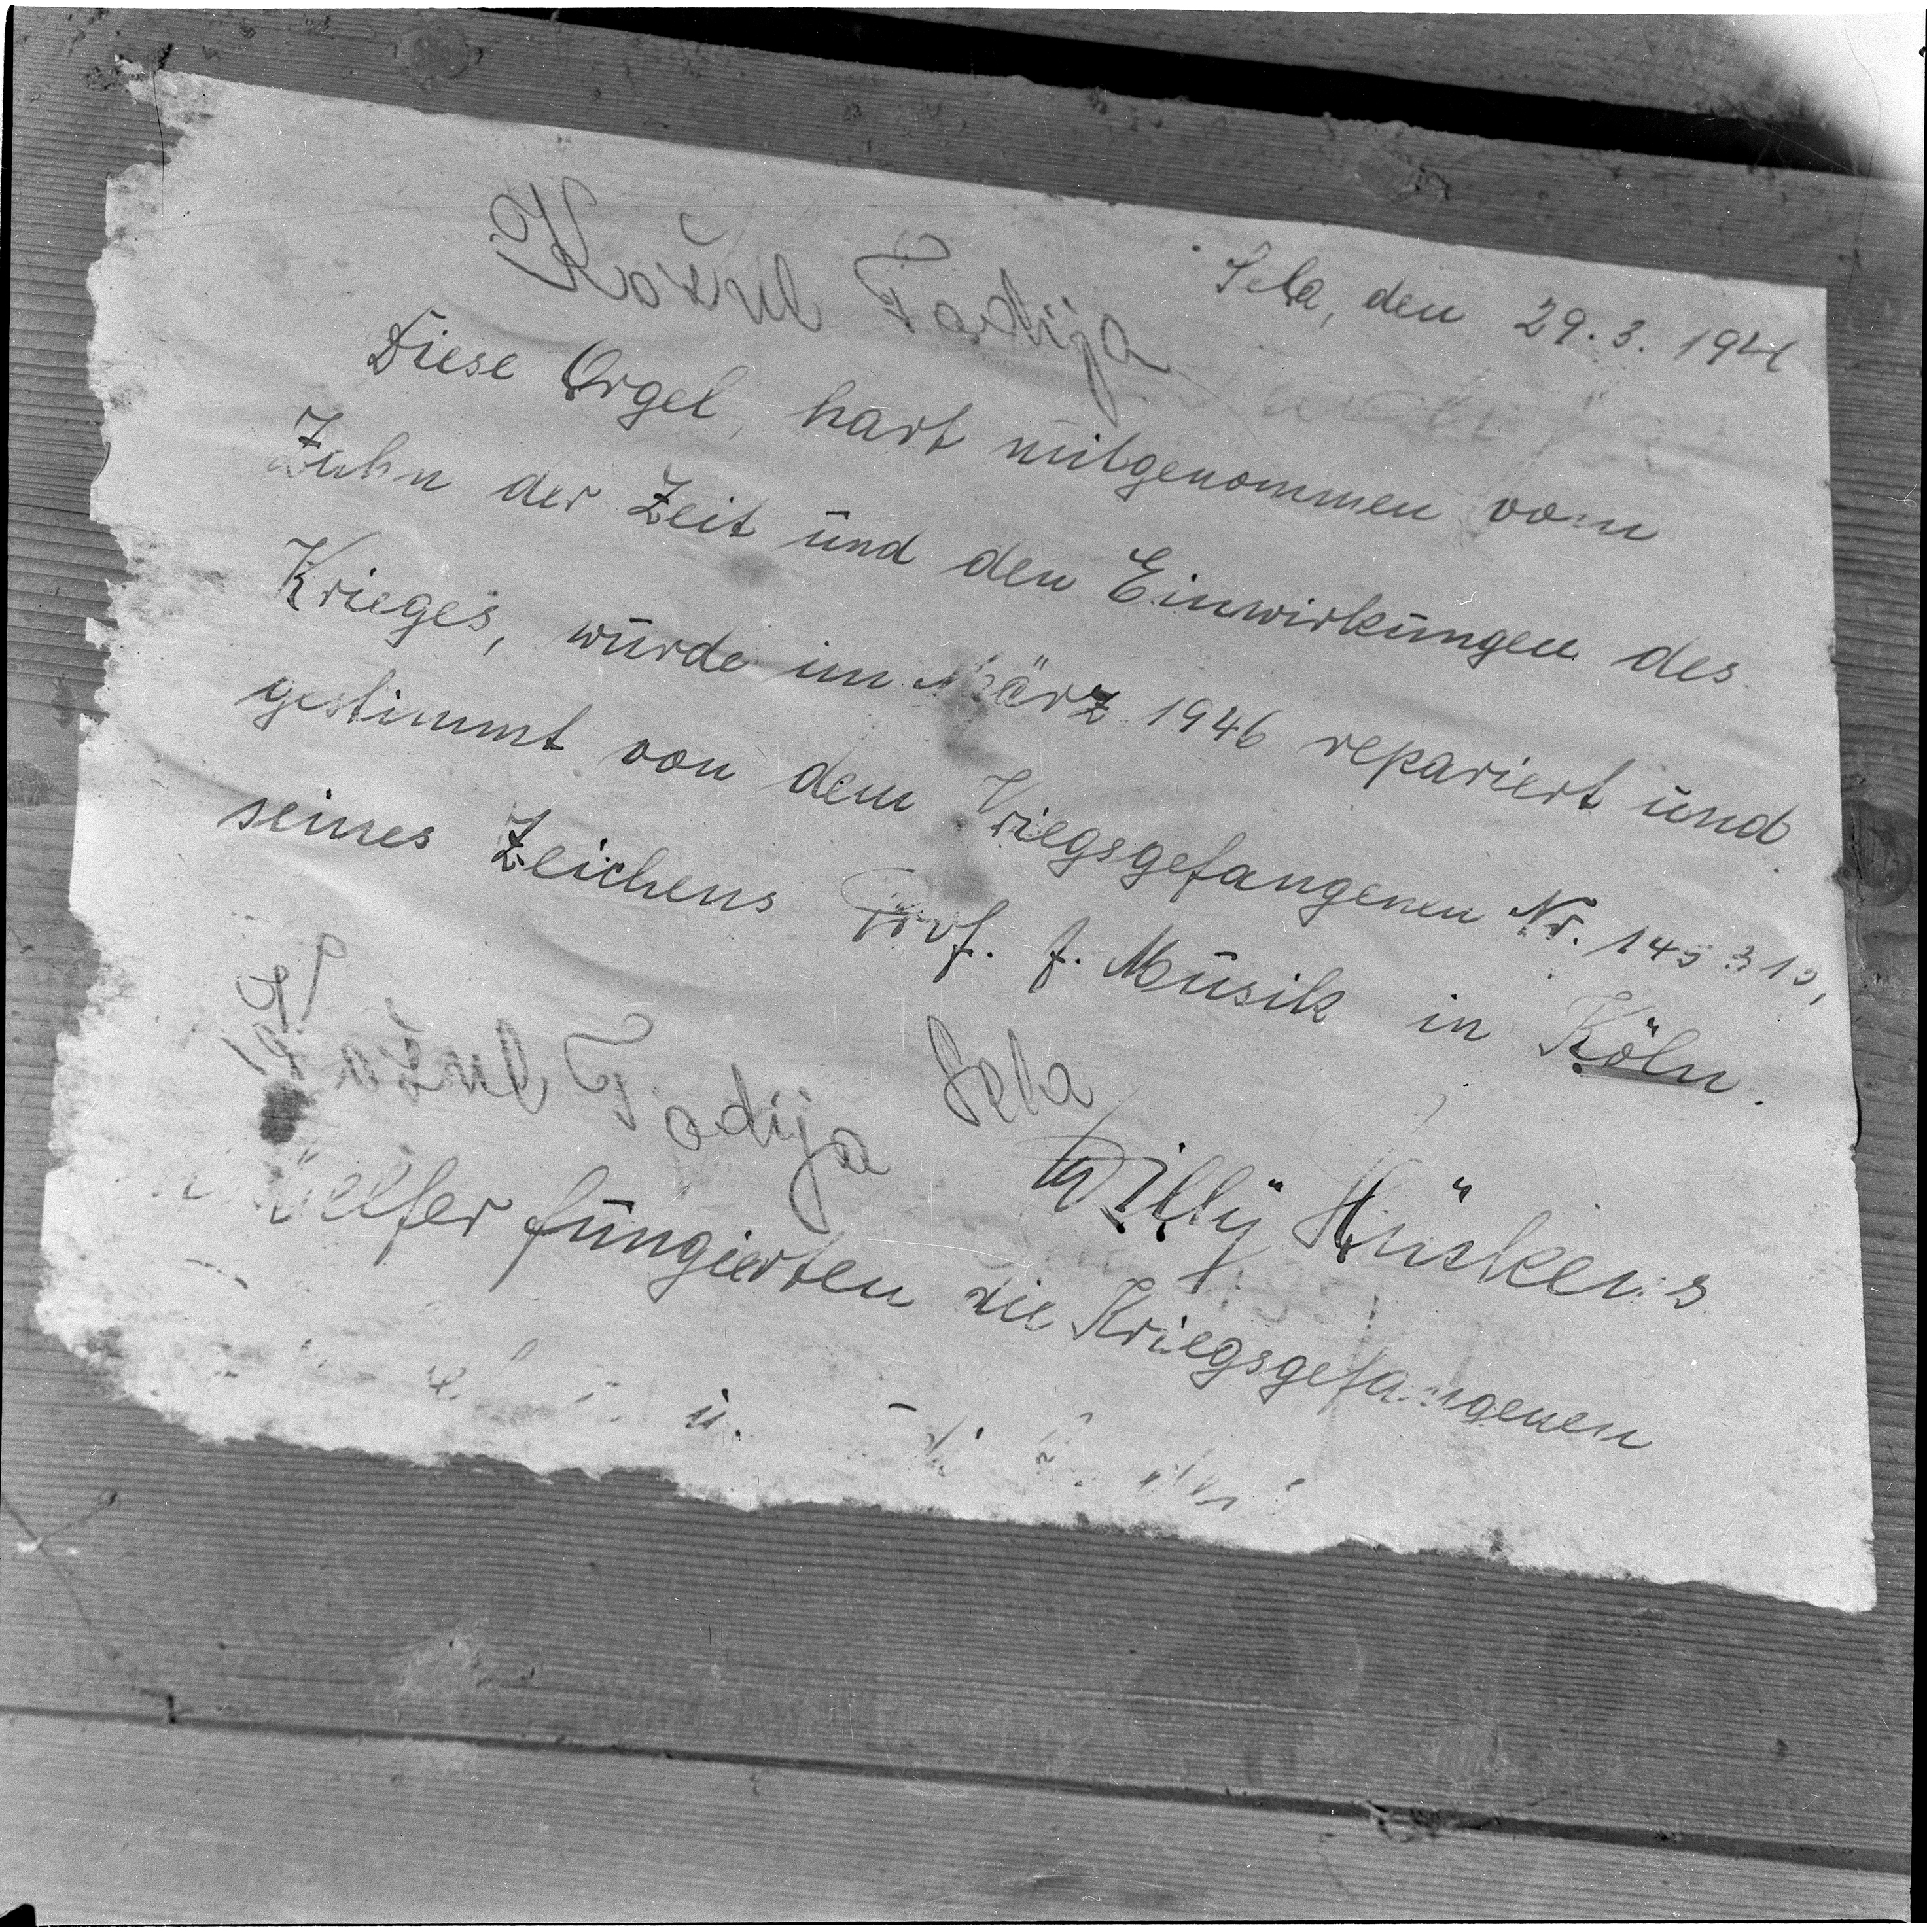 Sela, den 29.3.1946
Kožul Tadija
Diese Orgel, hart mitgenommen vom
Zahn der Zeit und den Einwirkungen des
Krieges, wurde im März 1946 repariert und
gestimmt von dem Kriegsgefangenen Nr. 145315,
seines Zeichens Prof. f. Musik in Köln.
Kožul Tadija Sela
Willy Hüskens
fungierten die Kriegsgefangenen
u.